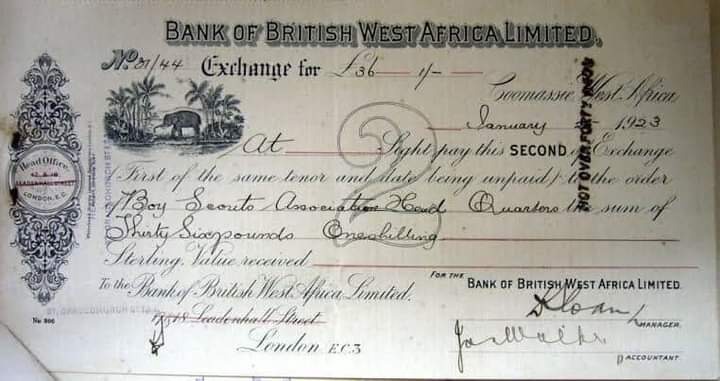 BANK OF BRITISH WEST AFRICA LIMITED.
No. 31/44 Exchange for £36 — 1/-
Coomassie, West Africa,
January 1923
At Sight pay this SECOND of Exchange
(First of the same tenor and date being unpaid) to the order
Boy Scouts Association Head Quarters the sum of
Thirty Six pounds One shilling
Sterling, Value received
FOR THE BANK OF BRITISH WEST AFRICA LIMITED.
To the Bank of British West Africa, Limited,
17/18 Leadenhall Street
London E.C.3
MANAGER.
ACCOUNTANT
Head Office
17 & 18
LEADENHALL STREET
LONDON, E.C.
No 806
NOT OVER FORTY
2